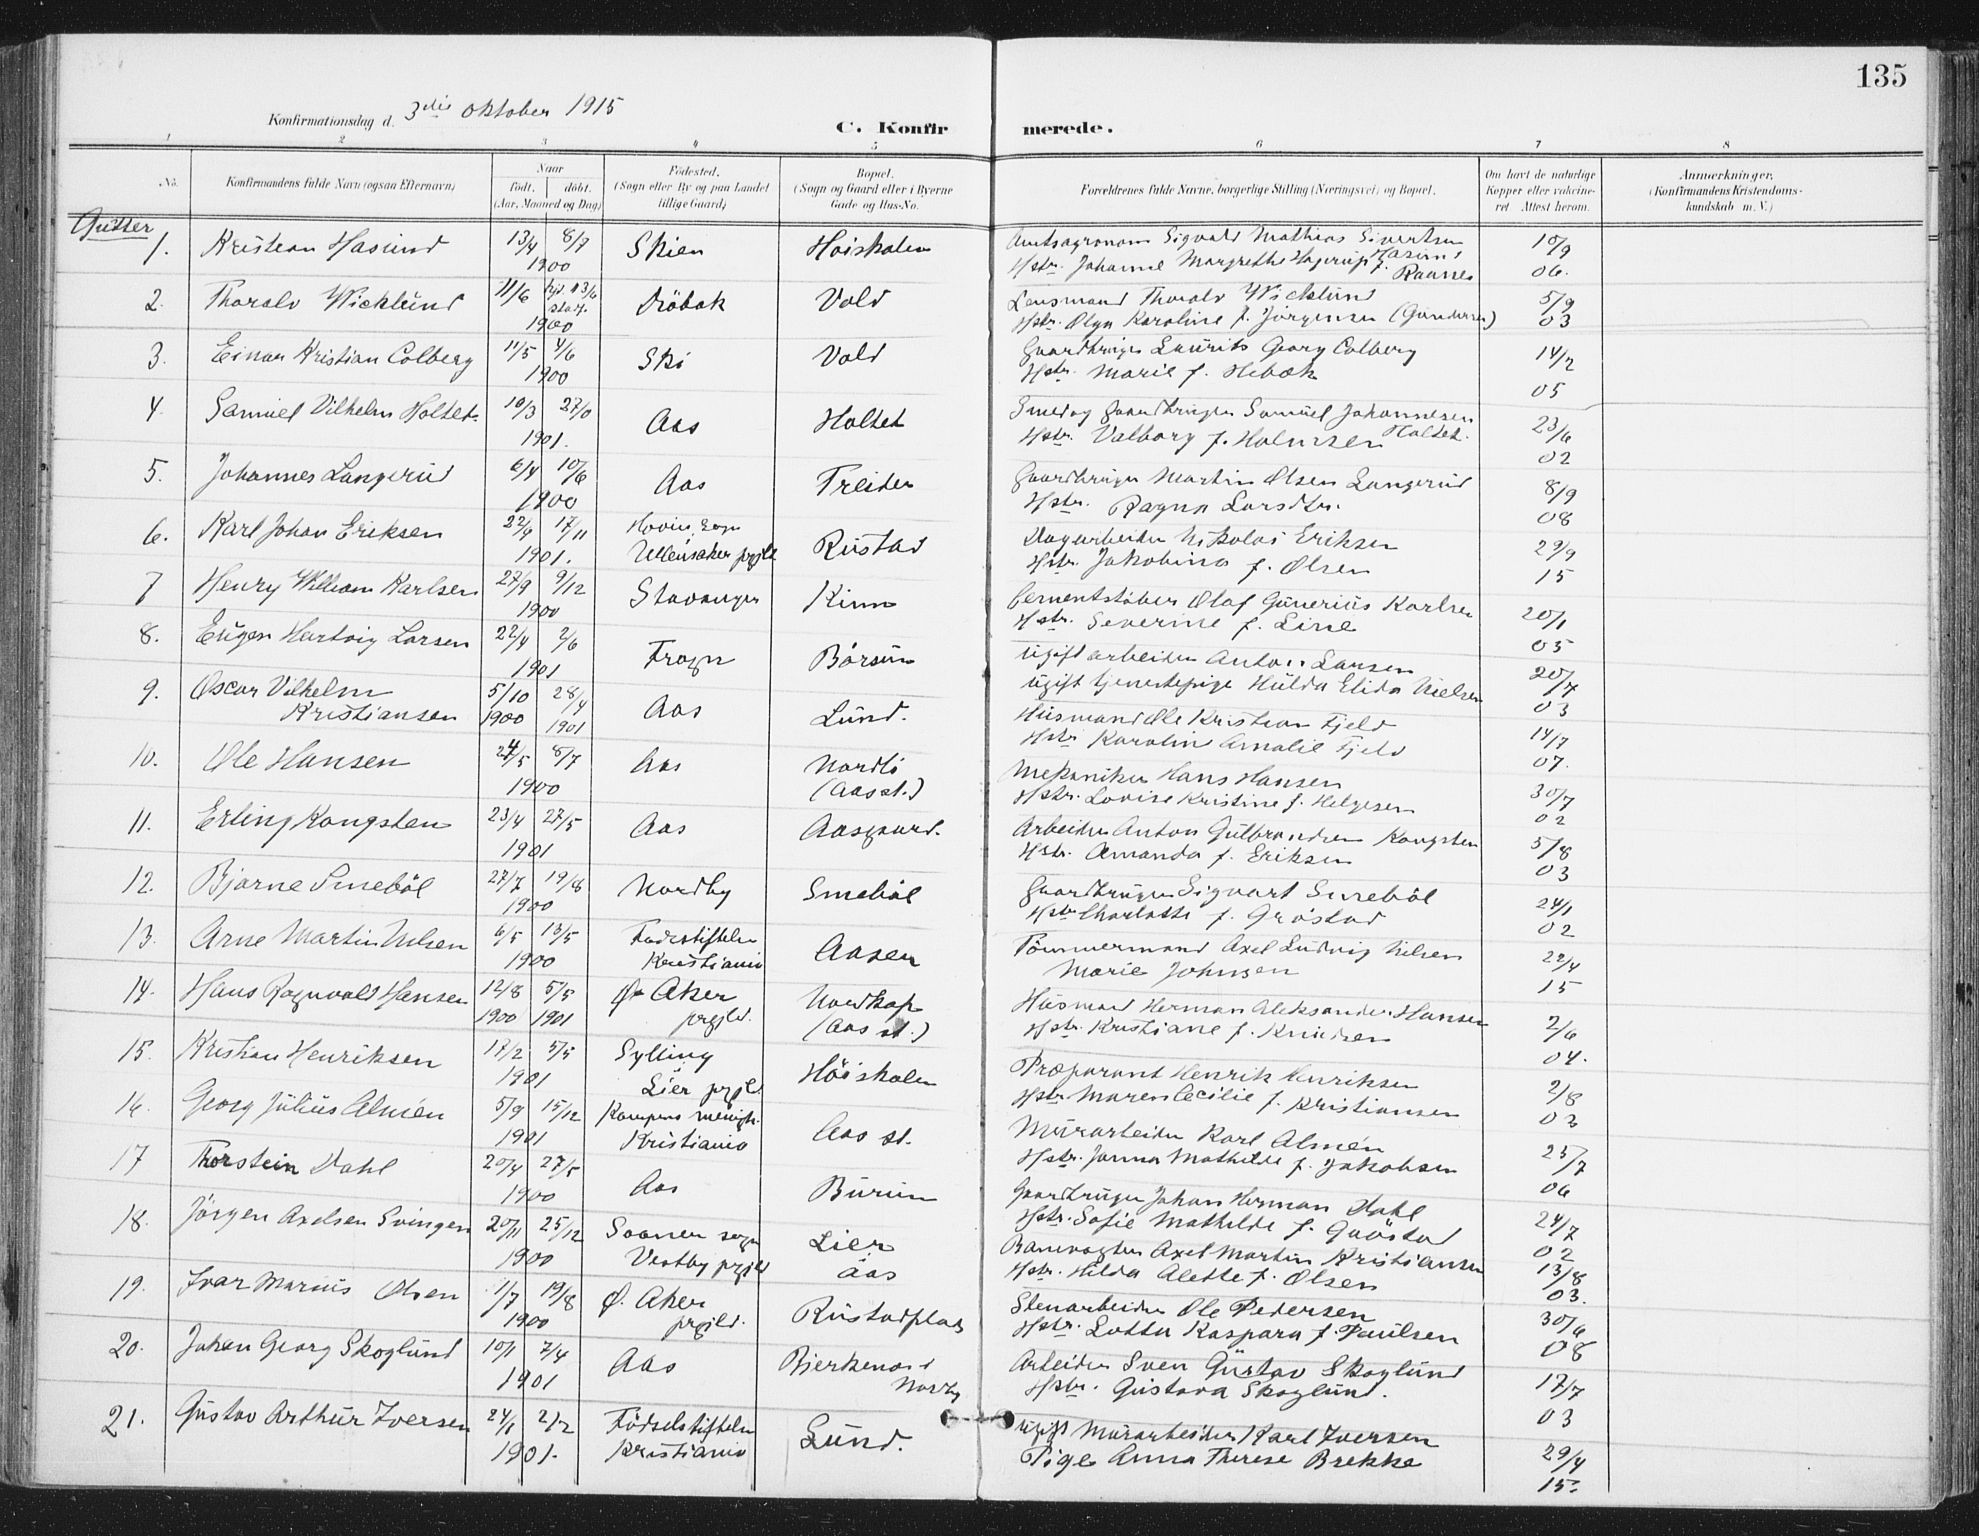 135
Konfirmationsdag d. 3die oktober 1915
C. Konfirmerede.
1 2 3 4 5 6 7 8
No. Konfirmandens fulde Navn (ogsaa Efternavn) Naar født. døbt. (Aar, Maaned og Dag) Fødested. (Sogn eller By og paa Landet tillige Gaard) Bopæl. (Sogn og Gaard eller i Byerne Gade og Hus-No. Forældrenes fulde Navne, borgerlige Stilling (Næringsvei) og Bopæl. Om havt de naturlige Kopper eller vakcineret Attest herom. Anmærkninger. (Konfirmandens Kristendomskundskab m. V.)
Gutter
1. Kristian Hasund 13/4 8/7 1900 Skien Høiskolen Amtsagronom Sigvald Mathias Sivertsen Hasund 10/9
Hstr. Johanne Margrethe Hagerup f. Raanes 06.
2. Thoralv Wicklund 11/6 hjd. 13/6 stadf. 1900 Drøbak Vold Lensmand Thoralv Wicklund 5/9
Hstr. Olga Karoline f. Jørgensen (Gundersen) 03
3. Einar Kristian Colberg 11/5 4/6 1900 Ski Vold Gaardbruger Laurits Georg Colberg 14/2
Hstr. Marie f. Hebæk 05
4. Samuel Vilhelm Holtet. 10/3 27/0 1901. Aas Holtet Smed og gaardbruger Samuel Johannesen Holtet. 23/6
Hstr. Valborg f. Halvorsen 02
5. Johannes Langerud 6/4 10/6 1900 Aas Treider Gaardbruger Martin Olsen Langerud 8/9
Hstr. Ragna Larsdtr. 08
6. Karl Johan Eriksen 22/9 17/11 1901. Hovin sogn Ullensaker prgjld Rustad Dagarbeider Nikolai Eriksen 29/9
Hstr. Jakobine f. Olsen 15
7 Henry William Karlsen 27/9 9/12 1900 Stavanger Kinn Cementstøber Olaf Gunerius Karlsen 20/1
Hstr. Severine f. Line 05
8. Eugen Hartvig Larsen 22/4 2/6 1901 Frogn Børsum Ugift arbeider Anton Larsen 20/7
ugift tjenestepige Hulda Elida Nielsen 03
9. Oscar Vilhelm Kristiansen 5/10 1900 28/4 1901 Aas Lund. Husmand Ole Kristian Fjeld 14/7
Hstr Karolin Amalie Fjeld 07.
10. Ole Hansen 24/5 8/7 1900 Aas Nordli (Aas st.) Mekaniker Hans Hansen 30/7
Hstr. Lovise Kristine f. Helgesen 02
11. Erling Kongsten 23/4 27/5 1901 Aas Aasgaard. Arbeider Anton Gulbrandsen Kongsten 5/8
Hstr. Amanda f. Eriksen 03
12. Bjarne Smebøl 27/7 19/8 1900 Nordby Smebøl Gaardbruger Sigvart Smebøl 24/1
Hstr Charlotte f. Grøstad 02
13. Arne Martin Nilsen 6/5 13/5 1900 Fødestiftelsen Kristiania Aasen Tømmermand Axel Ludvig Nilsen 22/4
Marie Johnsen 15
14. Hans Ragnvald Hansen 12/8 1900 5/5 1901 Ø. Aker prgjld. Nordkap (Aas st.) Husmand Herman Aleksander Hansen 2/6
Hstr. Kristiane f. Knudsen 04.
15. Kristian Henriksen 17/2 5/5 1901 Sylling Lier prgjld. Høiskolen Præparant Henrik Henriksen 2/8
Hstr Maren Cecilie f. Kristiansen 03
16. Georg Julius Almén 5/9 15/12 1901 Kampens menigh. Kristiania Aas st. Murarbeider Karl Almén 25/7
Hstr. Janna Mathilde f. Jakobsen 06
17 Thorstein Dahl 20/4 27/5 1900 Aas Burum Gaardbruger Johan Herman Dahl 24/7
Hstr. Sofie Mathilde f. Grøstad 02
18. Jørgen Axelsen Svingen 20/11 25/12 1900 Sooner sogn Vestby prgjld Lier aas Banevogter Axel Martin Kristiansen 13/8
Hstr. Hilda Alette f. Olsen 03.
19. Ivar Marius Olsen 1/7 19/8 1900 Ø. Aker prgjld. Rustadplads Stenarbeider Ole Pedersen 30/6
Hstr. Lotta Kaspara f. Paulsen 08
20. Johan Georg Skoglund 10/1 7/4 1901 Aas Bjerkenas i Nordby Arbeider Sven Gustav Skoglund 17/7
Hstr. Gustava Skoglund. 03
21. Gustav Arthur Iversen 24/1 2/2 1901. Fødselstiftelsen Kristiania Lund. ugift Murarbeider Karl Iversen 29/4
Pige Anna Therese Brekke 15.